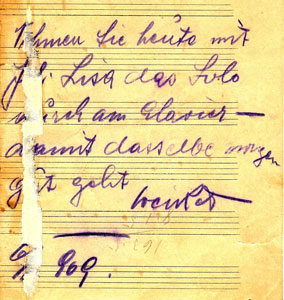 Nehmen Sie heute mit
Frl. Lisa das Solo
durch am Clavier –
damit dasselbe morgen
gut geht
909.